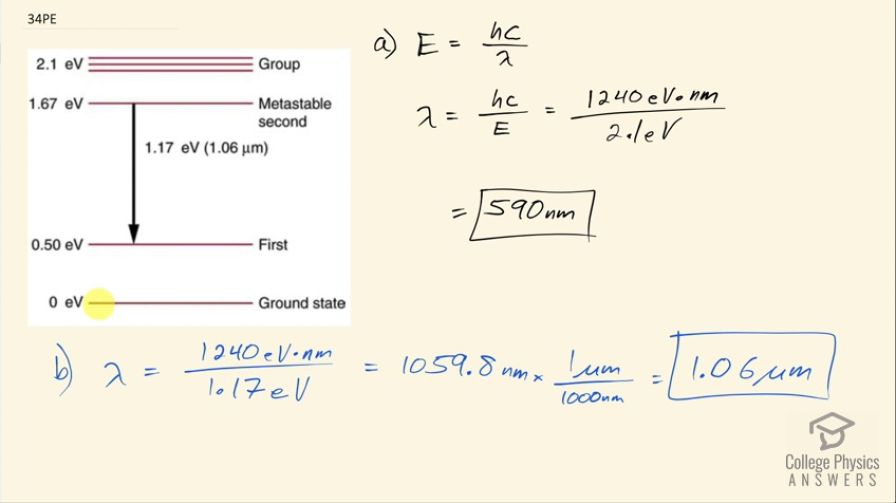 34PE
2.1 eV Group
1.67 eV Metastable
second
1.17 eV (1.06 μm)
0.50 eV First
0 eV Ground state
a) E = hc/λ
λ = hc/E = 1240 eV·nm/2.1eV
= 590nm
b) λ = 1240 eV·nm/1.17 eV = 1059.8 nm × 1 μm/1000nm = 1.06 μm
College Physics
ANSWERS